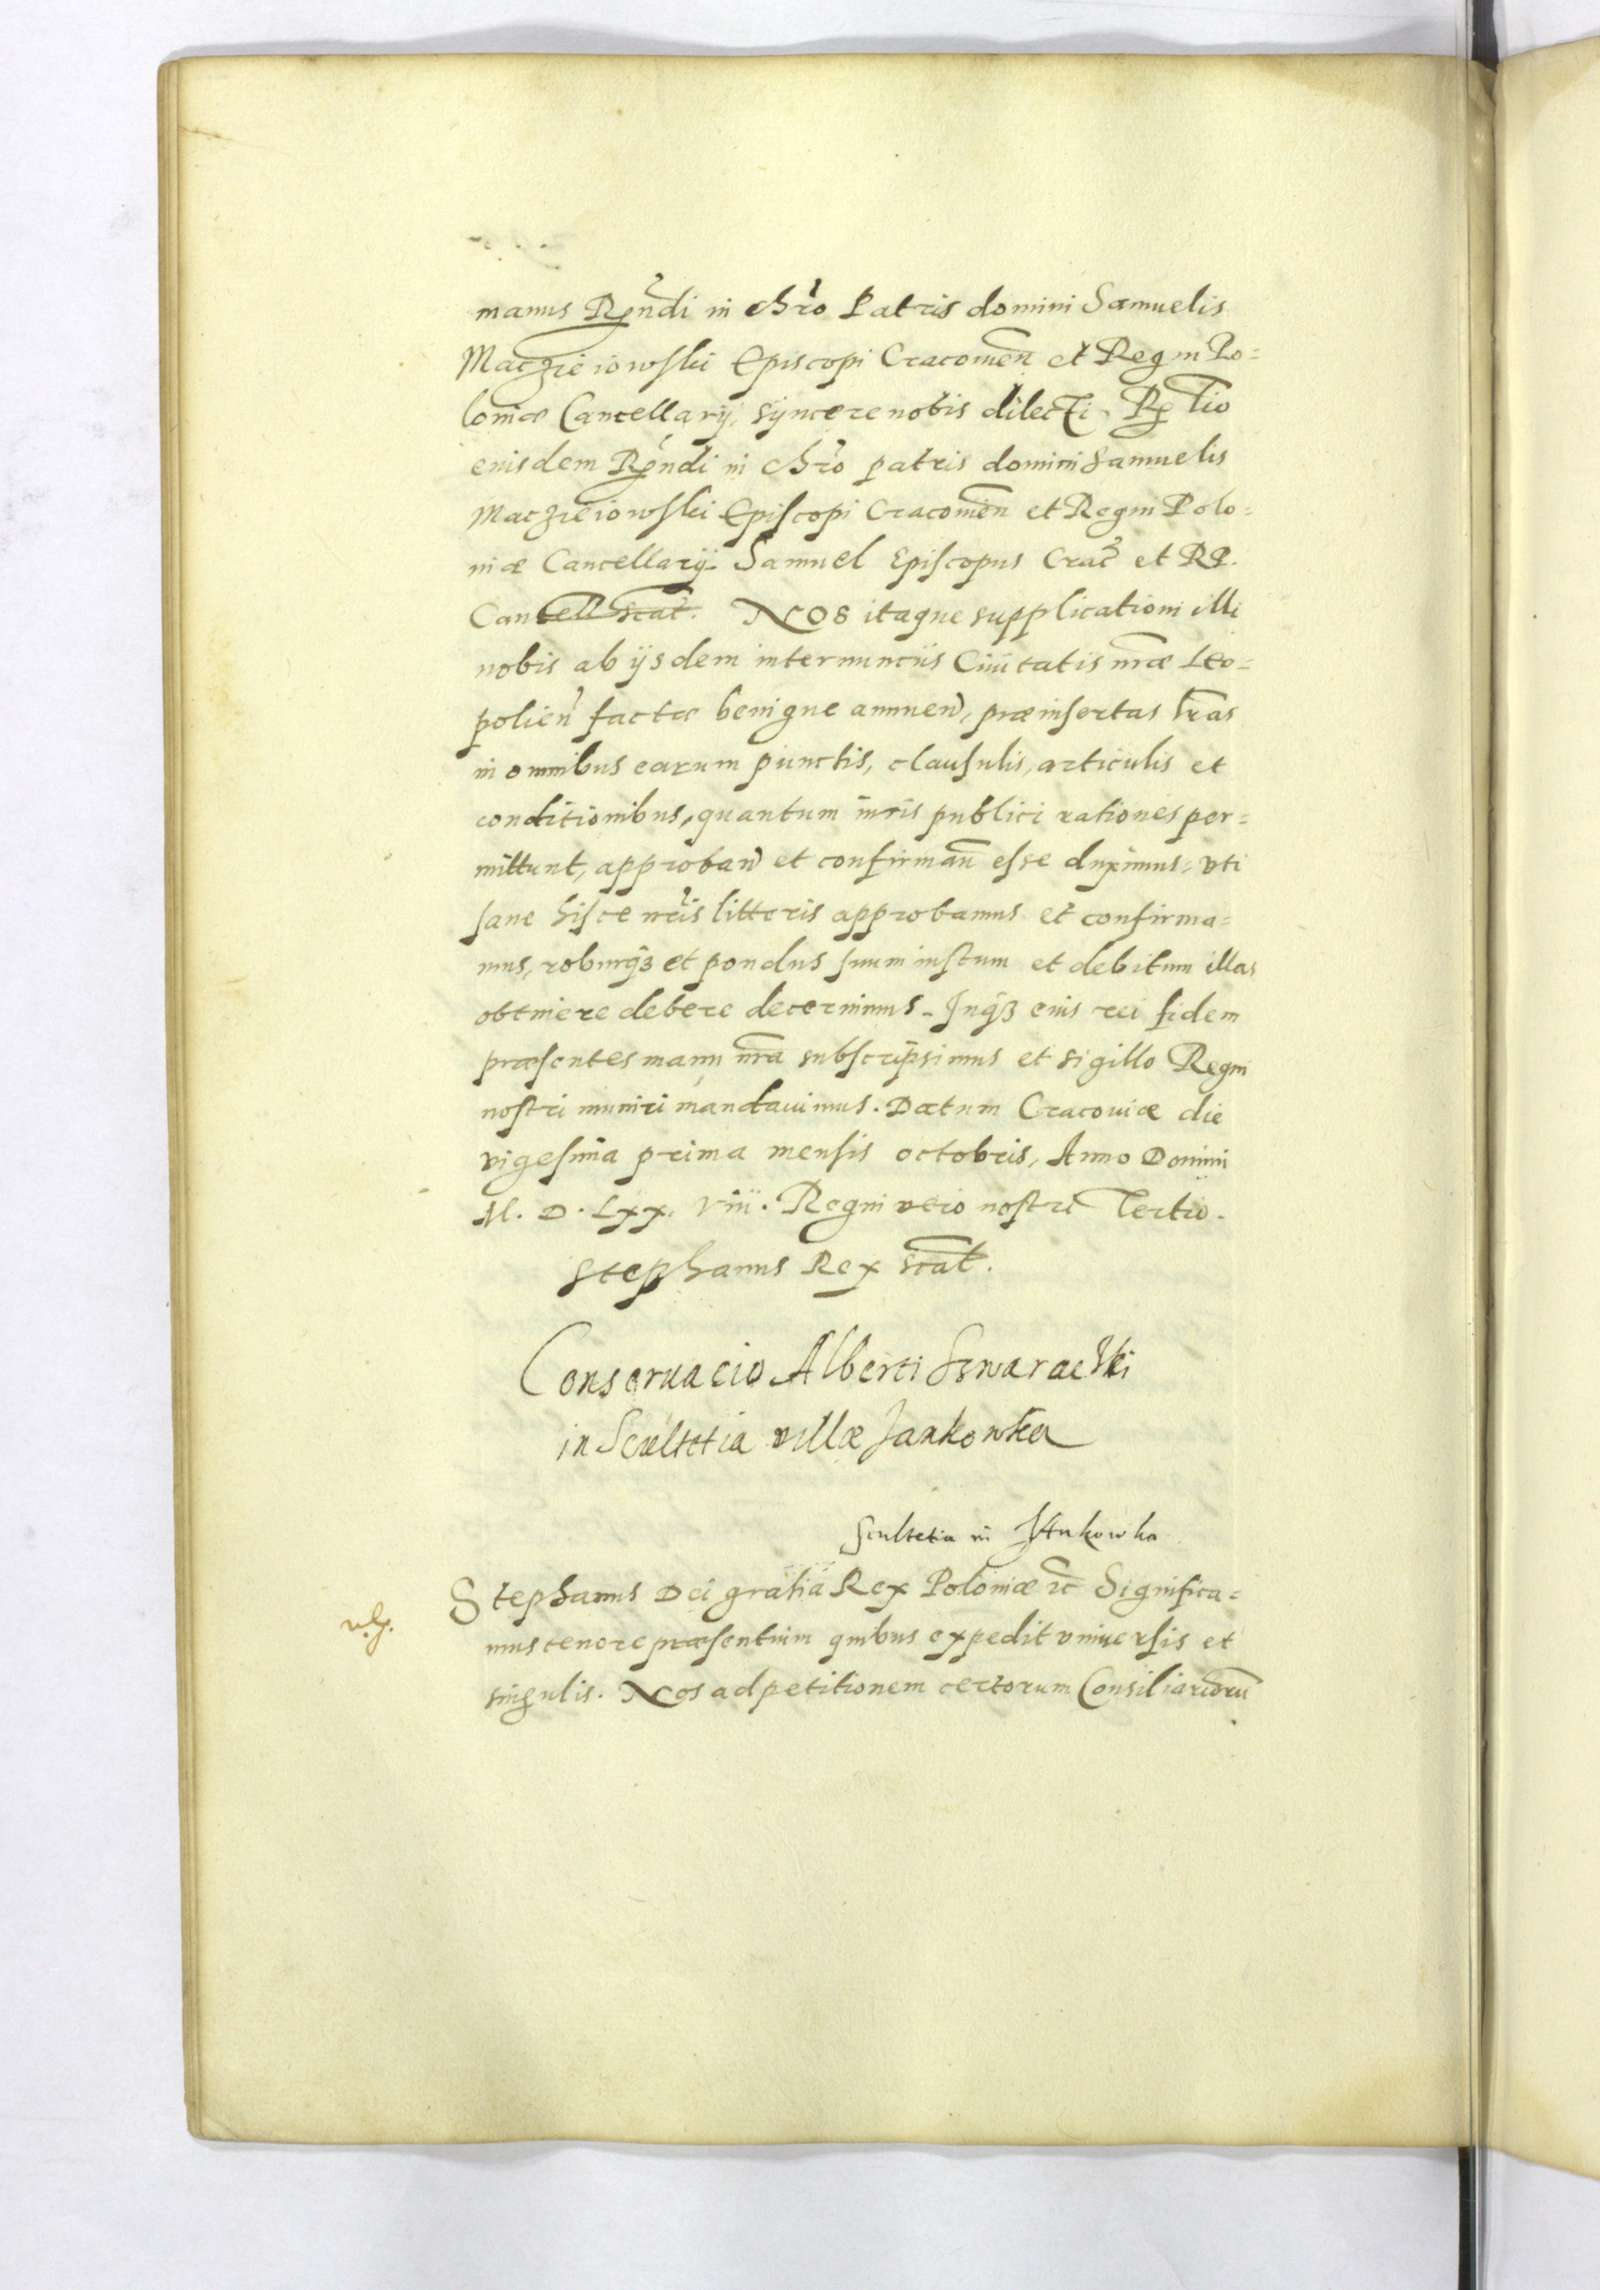 manus Rṇdi in chr̃o Patris domini Samuelis
Maczieiowski Episcopi Cracouien̄ et Regni Po=
loniæ Cancellarij, syncere nobis dilecti. R̃tio
eiusdem Rṇdi in chr̃o patris domini Samuelis
Maczieiowski Episcopi Cracouien̄ et Regni Polo=
niæ Cancellarij. Samuel Episcopus Crac̃ et R P.
Cancell scȃt. Nos itaque supplicationi illi
nobis ab ijsdem internunciis Ciuitatis nr̃æ Leo=
polien̄ factæ benigne annuen̄, præinsertas lr̃as
in omnibus earum punctis, clausulis, articulis et
conditionibus, quantum iuris publici rationes per=
mittunt, approban̄ et confirman̄ esse duximus, vti
sane hisce nr̃is litteris approbamus et confirma=
mus, roburq̃ꝫ et pondus suum iustum et debitum illas
obtinere debere decernimus. Inq̃ꝫ eius rei fidem
præsentes manu nr̃a subscripsimus et sigillo Regni
nostri muniri mandauimus. Datum Cracouiæ die
vigesima prima mensis octobris, Anno Domini
M. D. Lxx. viii. Regni vero nostri Tertio.
Stephanus Rex scat̃.
Conseruacio Alberti
in Scultetia villæ Jankowka
Scultetia in Jankowka
Stephanus Dei gratia Rex Poloniæ ꝛc̃ Significa=
mus tenore præsentium quibus expedit vniuersis et
singulis. Nos ad petitionem certorum Consiliariorū